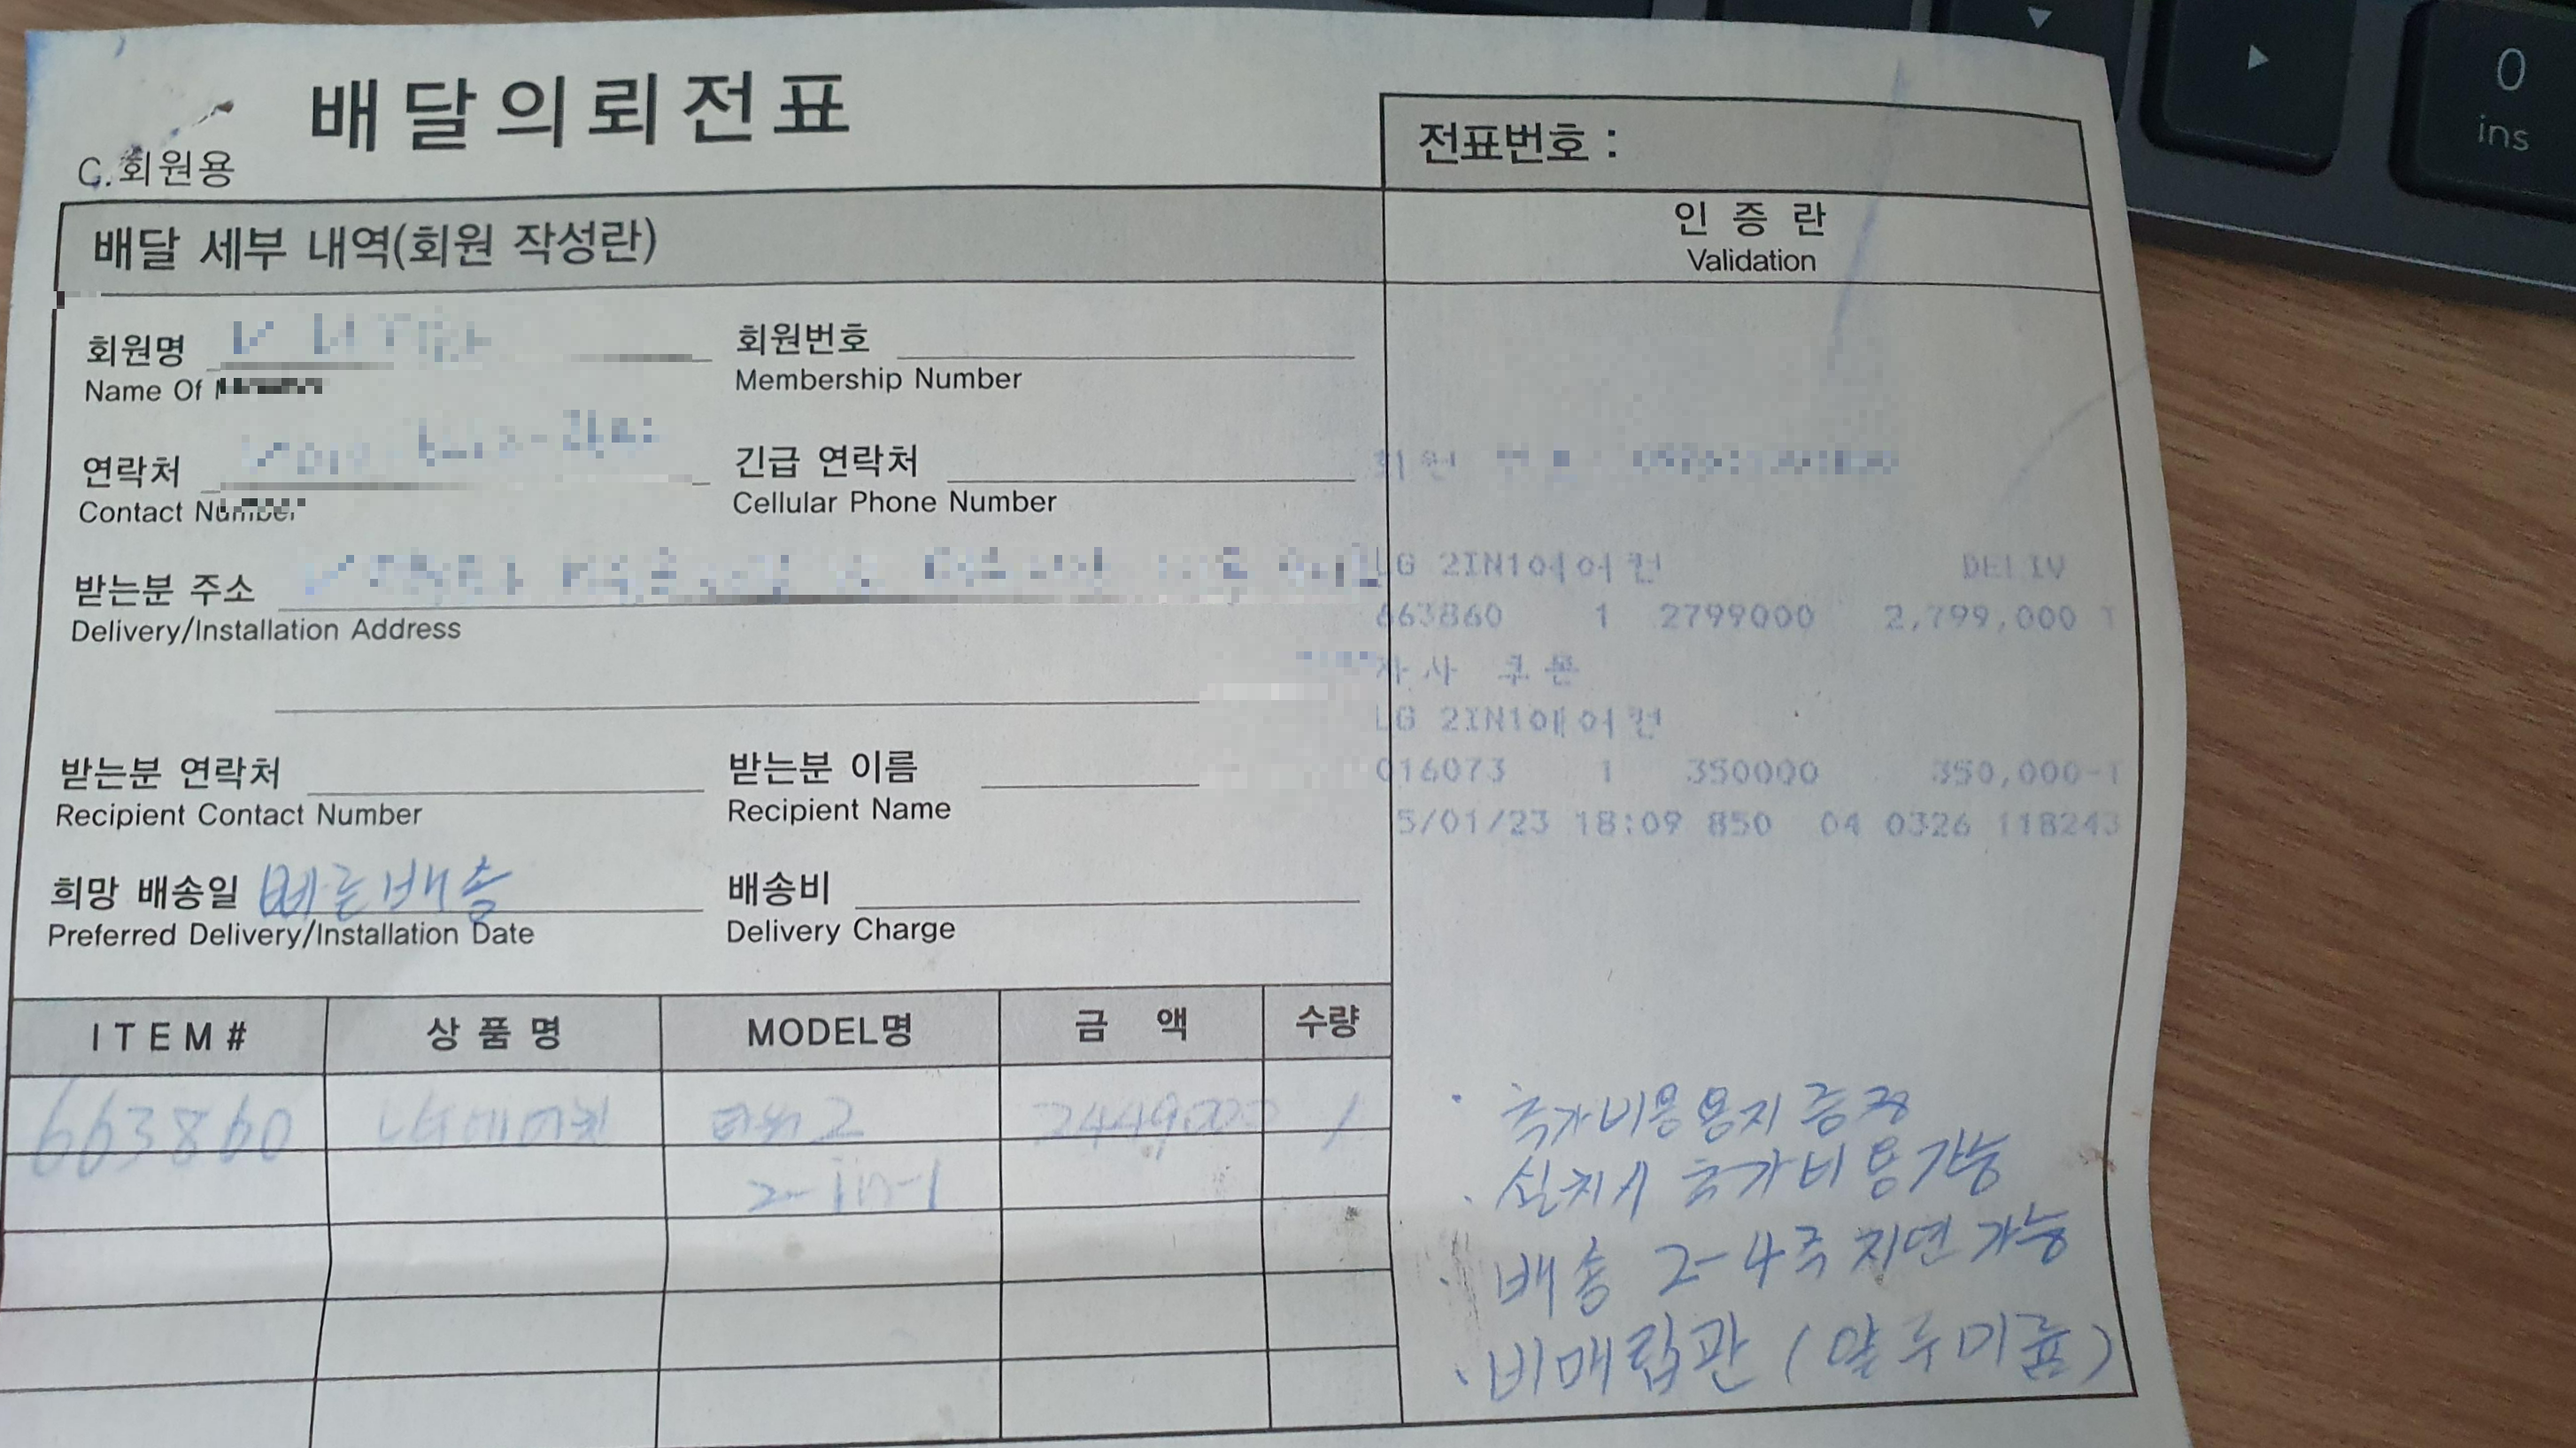 배달의뢰전표
C.회원용
전표번호 :
배달 세부 내역(회원 작성란)
인 증 란
Validation
회원명
Name Of
회원번호
Membership Number
연락처
Contact Number
긴급 연락처
Cellular Phone Number
받는분 주소
Delivery/Installation Address
받는분 연락처
Recipient Contact Number
받는분 이름
Recipient Name
희망 배송일 빠른배송
Preferred Delivery/Installation Date
배송비
Delivery Charge
회원 번호
LG 2IN1에어컨 DELIV
663860 1 2799000 2,799,000 T
자사 쿠폰
LG 2IN1에어컨
016073 1 350000 350,000-T
5/01/23 18:09 850 04 0326 118243
ITEM# 상품명 MODEL명 금 액 수량
663860 LG에어컨 타워2 2449,000 1
2-in-1
· 추가비용용지 증정
· 설치시 추가비용가능
· 배송 2-4주 지연 가능
· 비매립관 (알루미늄)
0
ins